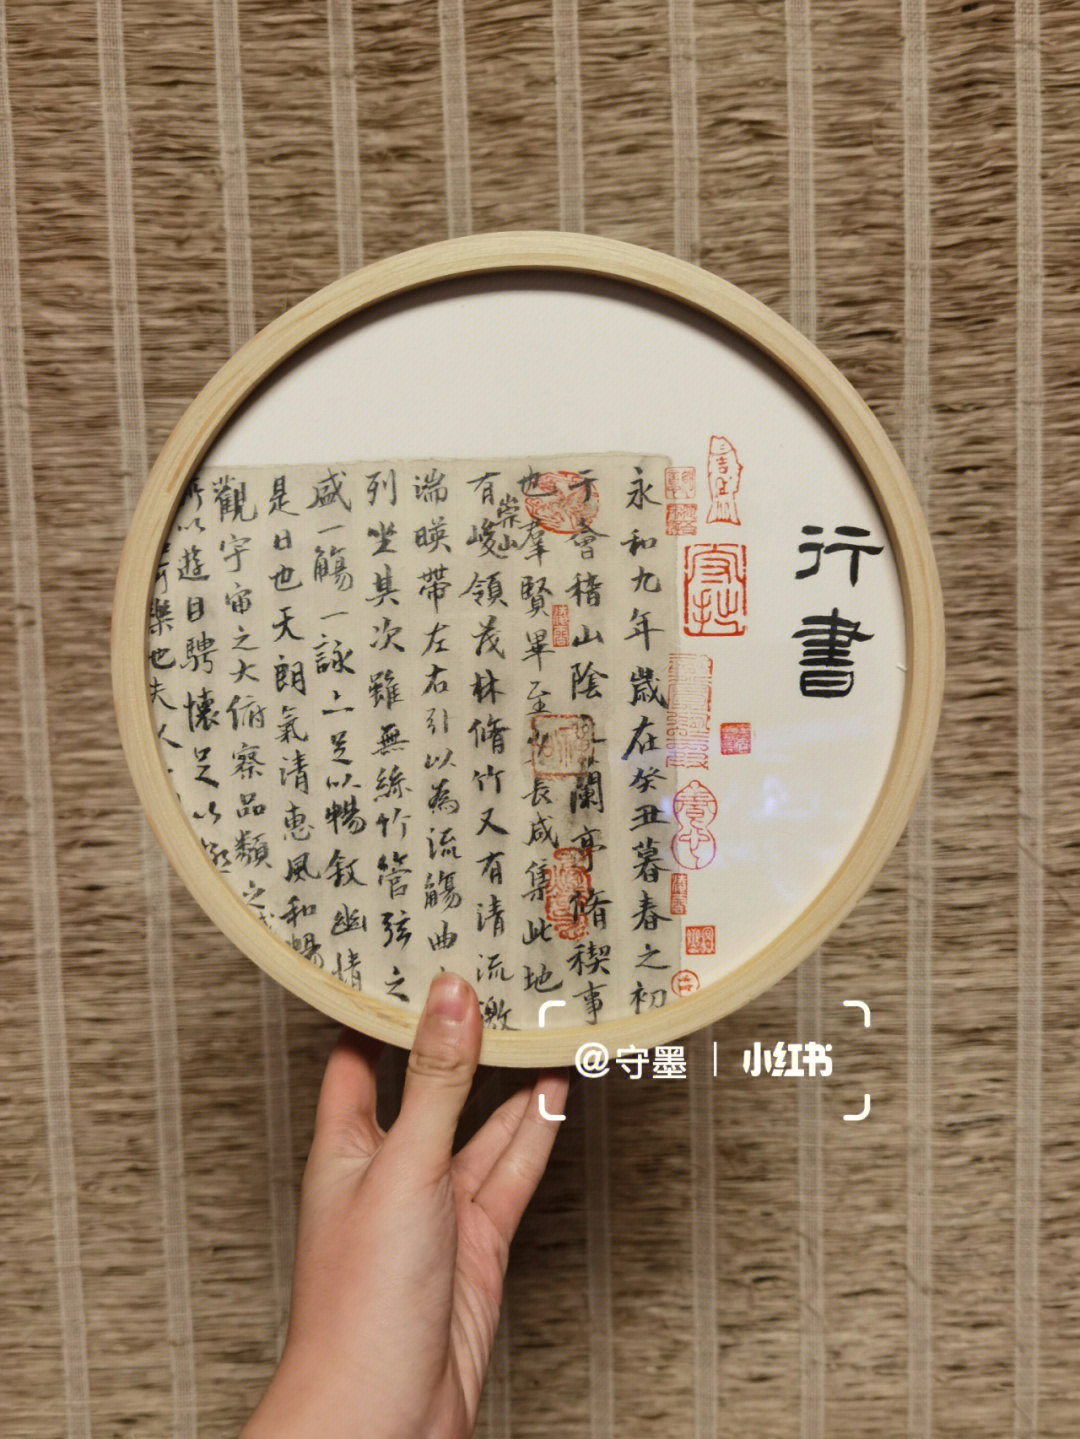 行書
永和九年歲在癸丑暮春之初
于會稽山陰蘭亭脩稧事
也羣賢畢至長咸集此地
有崇山峻領茂林脩竹又有清流激
湍暎帶左右引以為流觴曲
列坐其次雖無絲竹管弦之
盛一觴一詠亦足以暢敘幽情
是日也天朗氣清惠風和暢
觀宇宙之大俯察品類之
所以遊目騁懷足以
樂也夫人
@守墨 | 小红书